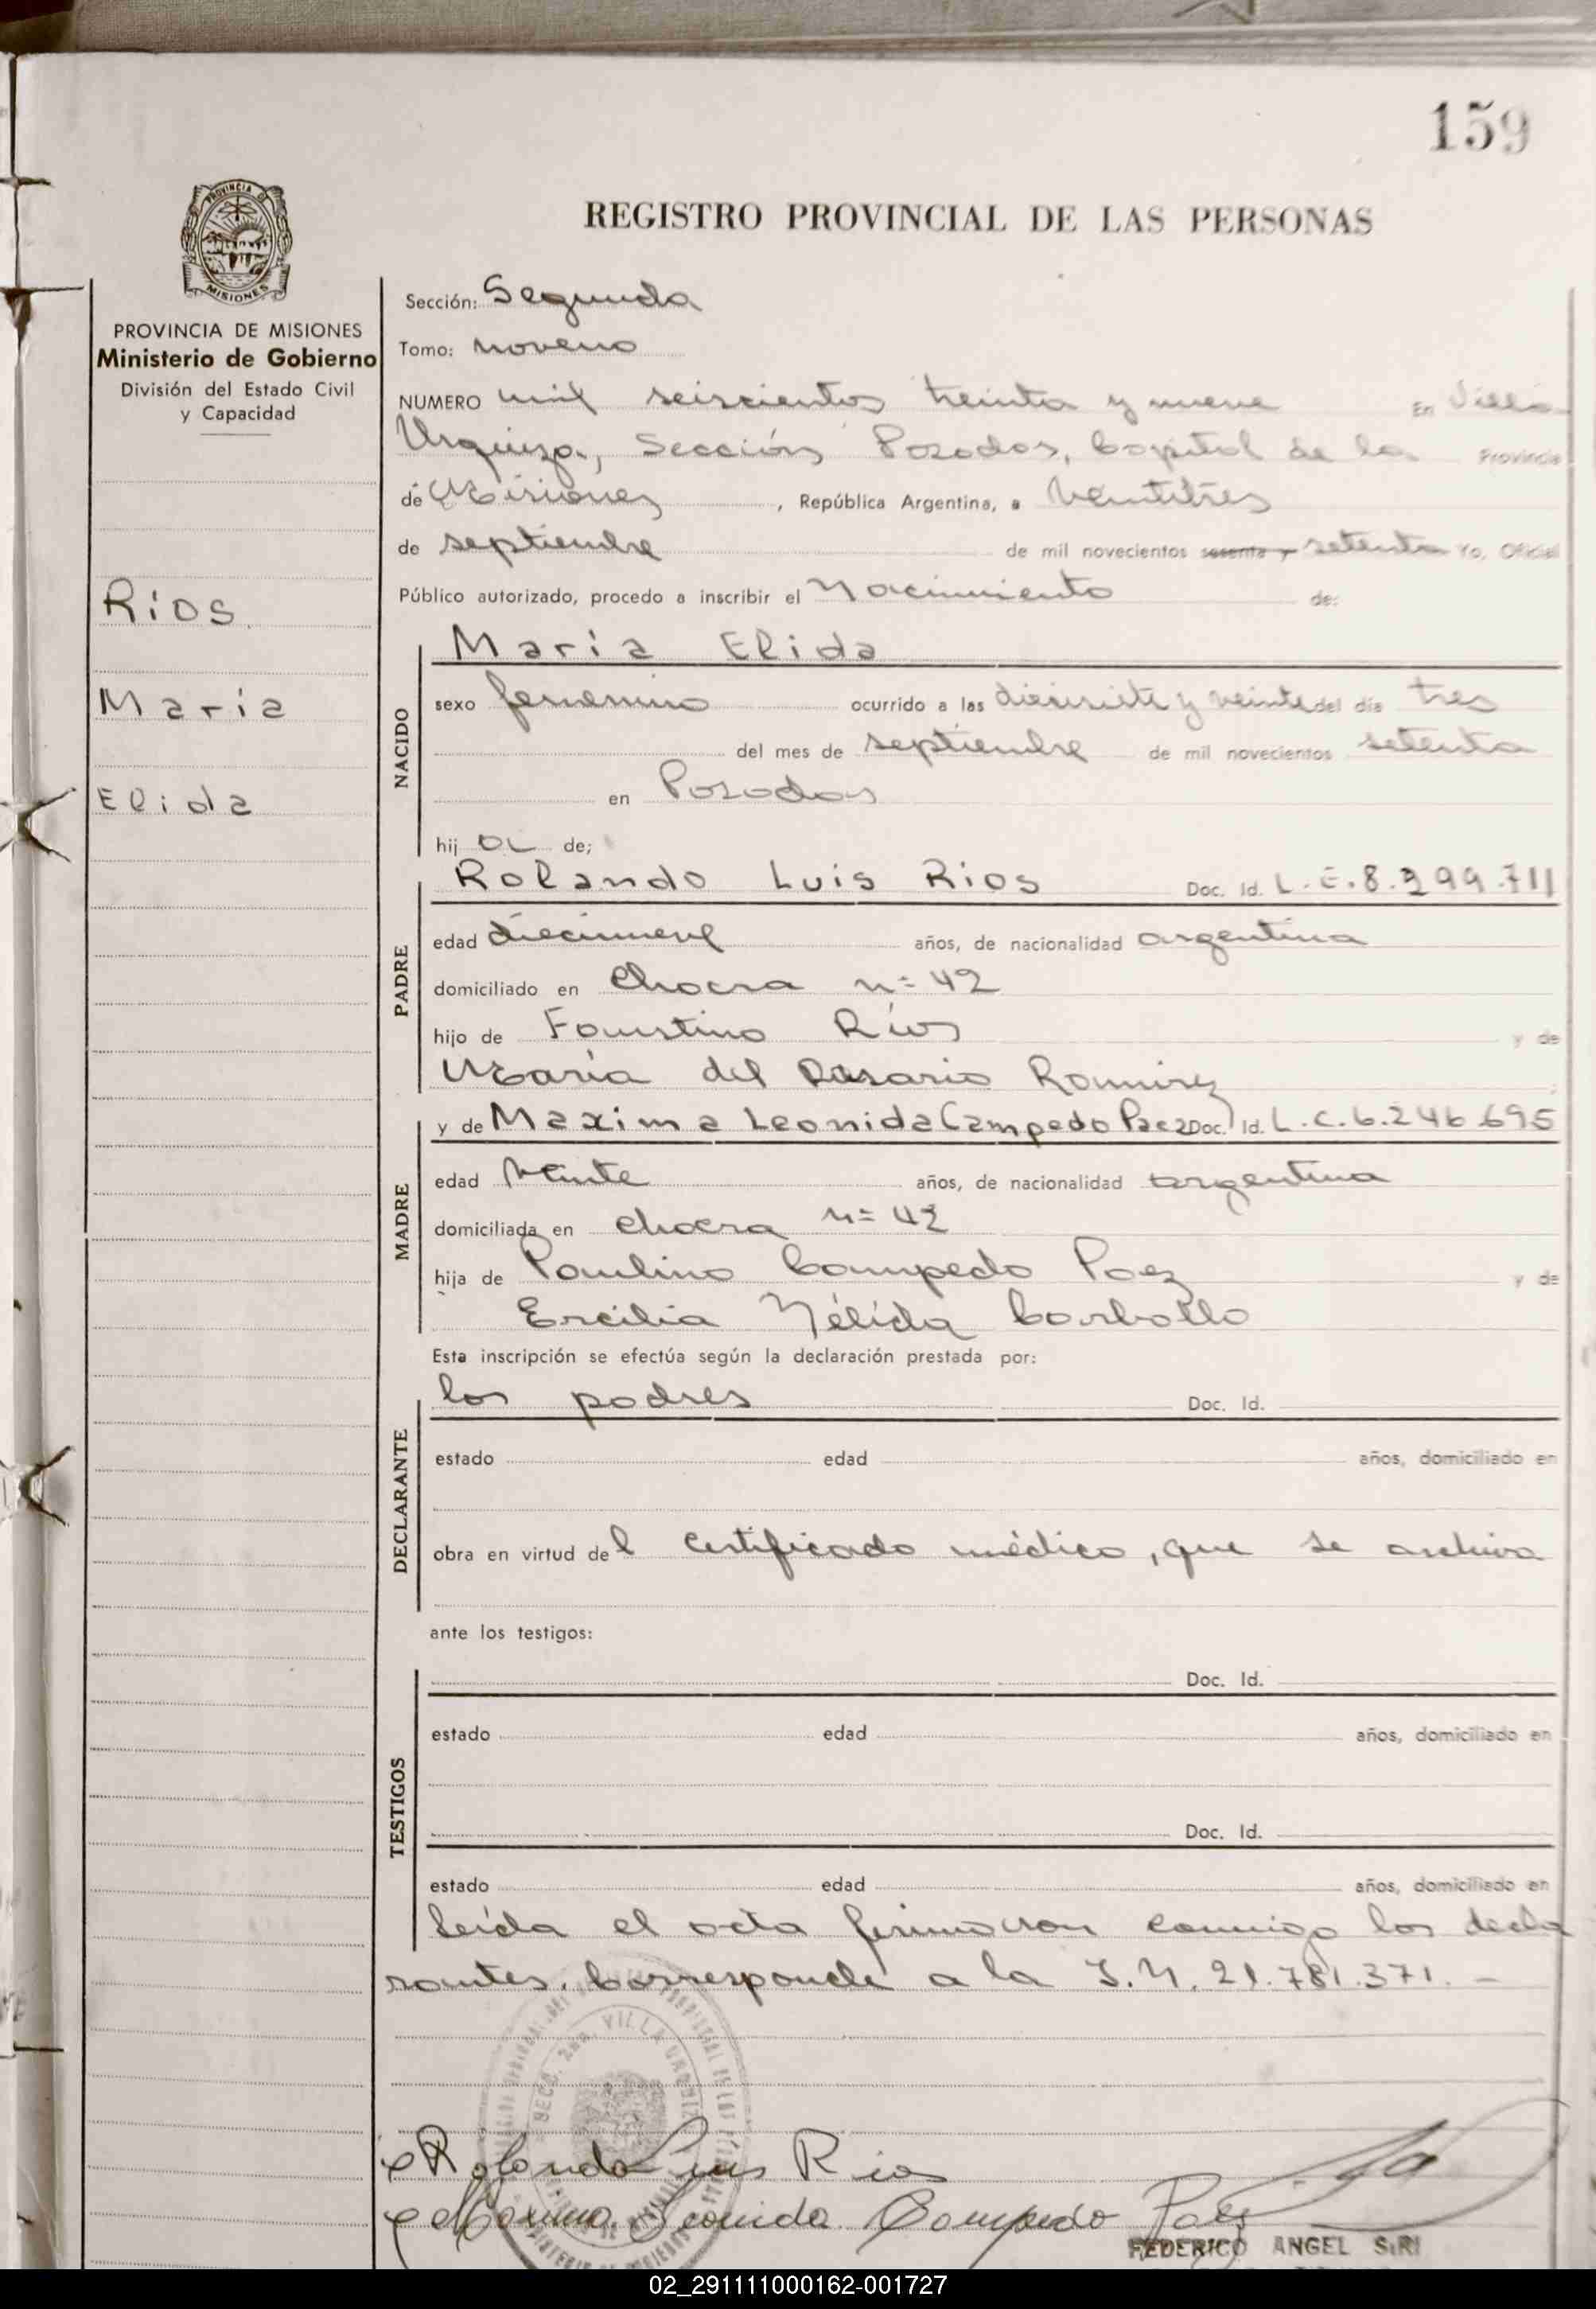 159
REGISTRO PROVINCIAL DE LAS PERSONAS
PROVINCIA DE MISIONES
Ministerio de Gobierno
División del Estado Civil
y Capacidad
Rios
María
Elida
Sección: Segunda
Tomo: noveno
NUMERO mil seiscientos treinta y nueve En Villa
Urquiza, Sección Posadas, Capital de la Provincia
de Misiones, República Argentina, a veintitres
de septiembre de mil novecientos sesenta y setenta Yo, Oficial
Público autorizado, procedo a inscribir el Nacimiento de:
NACIDO
María Elida
sexo femenino ocurrido a las diecisiete y veinte del día tres
del mes de septiembre de mil novecientos setenta
en Posadas
hij a de;
PADRE
Rolando Luis Rios Doc. Id. L.E.8.299.711
edad diecinueve años, de nacionalidad argentina
domiciliado en Chacra n= 42
hijo de Faustino Ríos y de
María del Rosario Ramirez
MADRE
y de Maxima Leonida Campedo Paez Doc. Id. L.C.6.246.695
edad veinte años, de nacionalidad argentina
domiciliada en chacra n= 42
hija de Paulino Campedo Paez y de
Ercilia Nélida Carballo
Esta inscripción se efectúa según la declaración prestada por:
DECLARANTE
los padres Doc. Id.
estado edad años, domiciliado en
obra en virtud del certificado médico, que se archiva
ante los testigos:
TESTIGOS
Doc. Id.
estado edad años, domiciliado en
Doc. Id.
estado edad años, domiciliado en
Leída el acta firmaron conmigo los decla
rantes. Corresponde a la I.N. 21.781.371. -
SECC. 2da. VILLA URQUIZA
Rolando Luis Rios
Maxima Leonida Campedo Paez
FEDERICO ANGEL SIRI
02_291111000162-001727